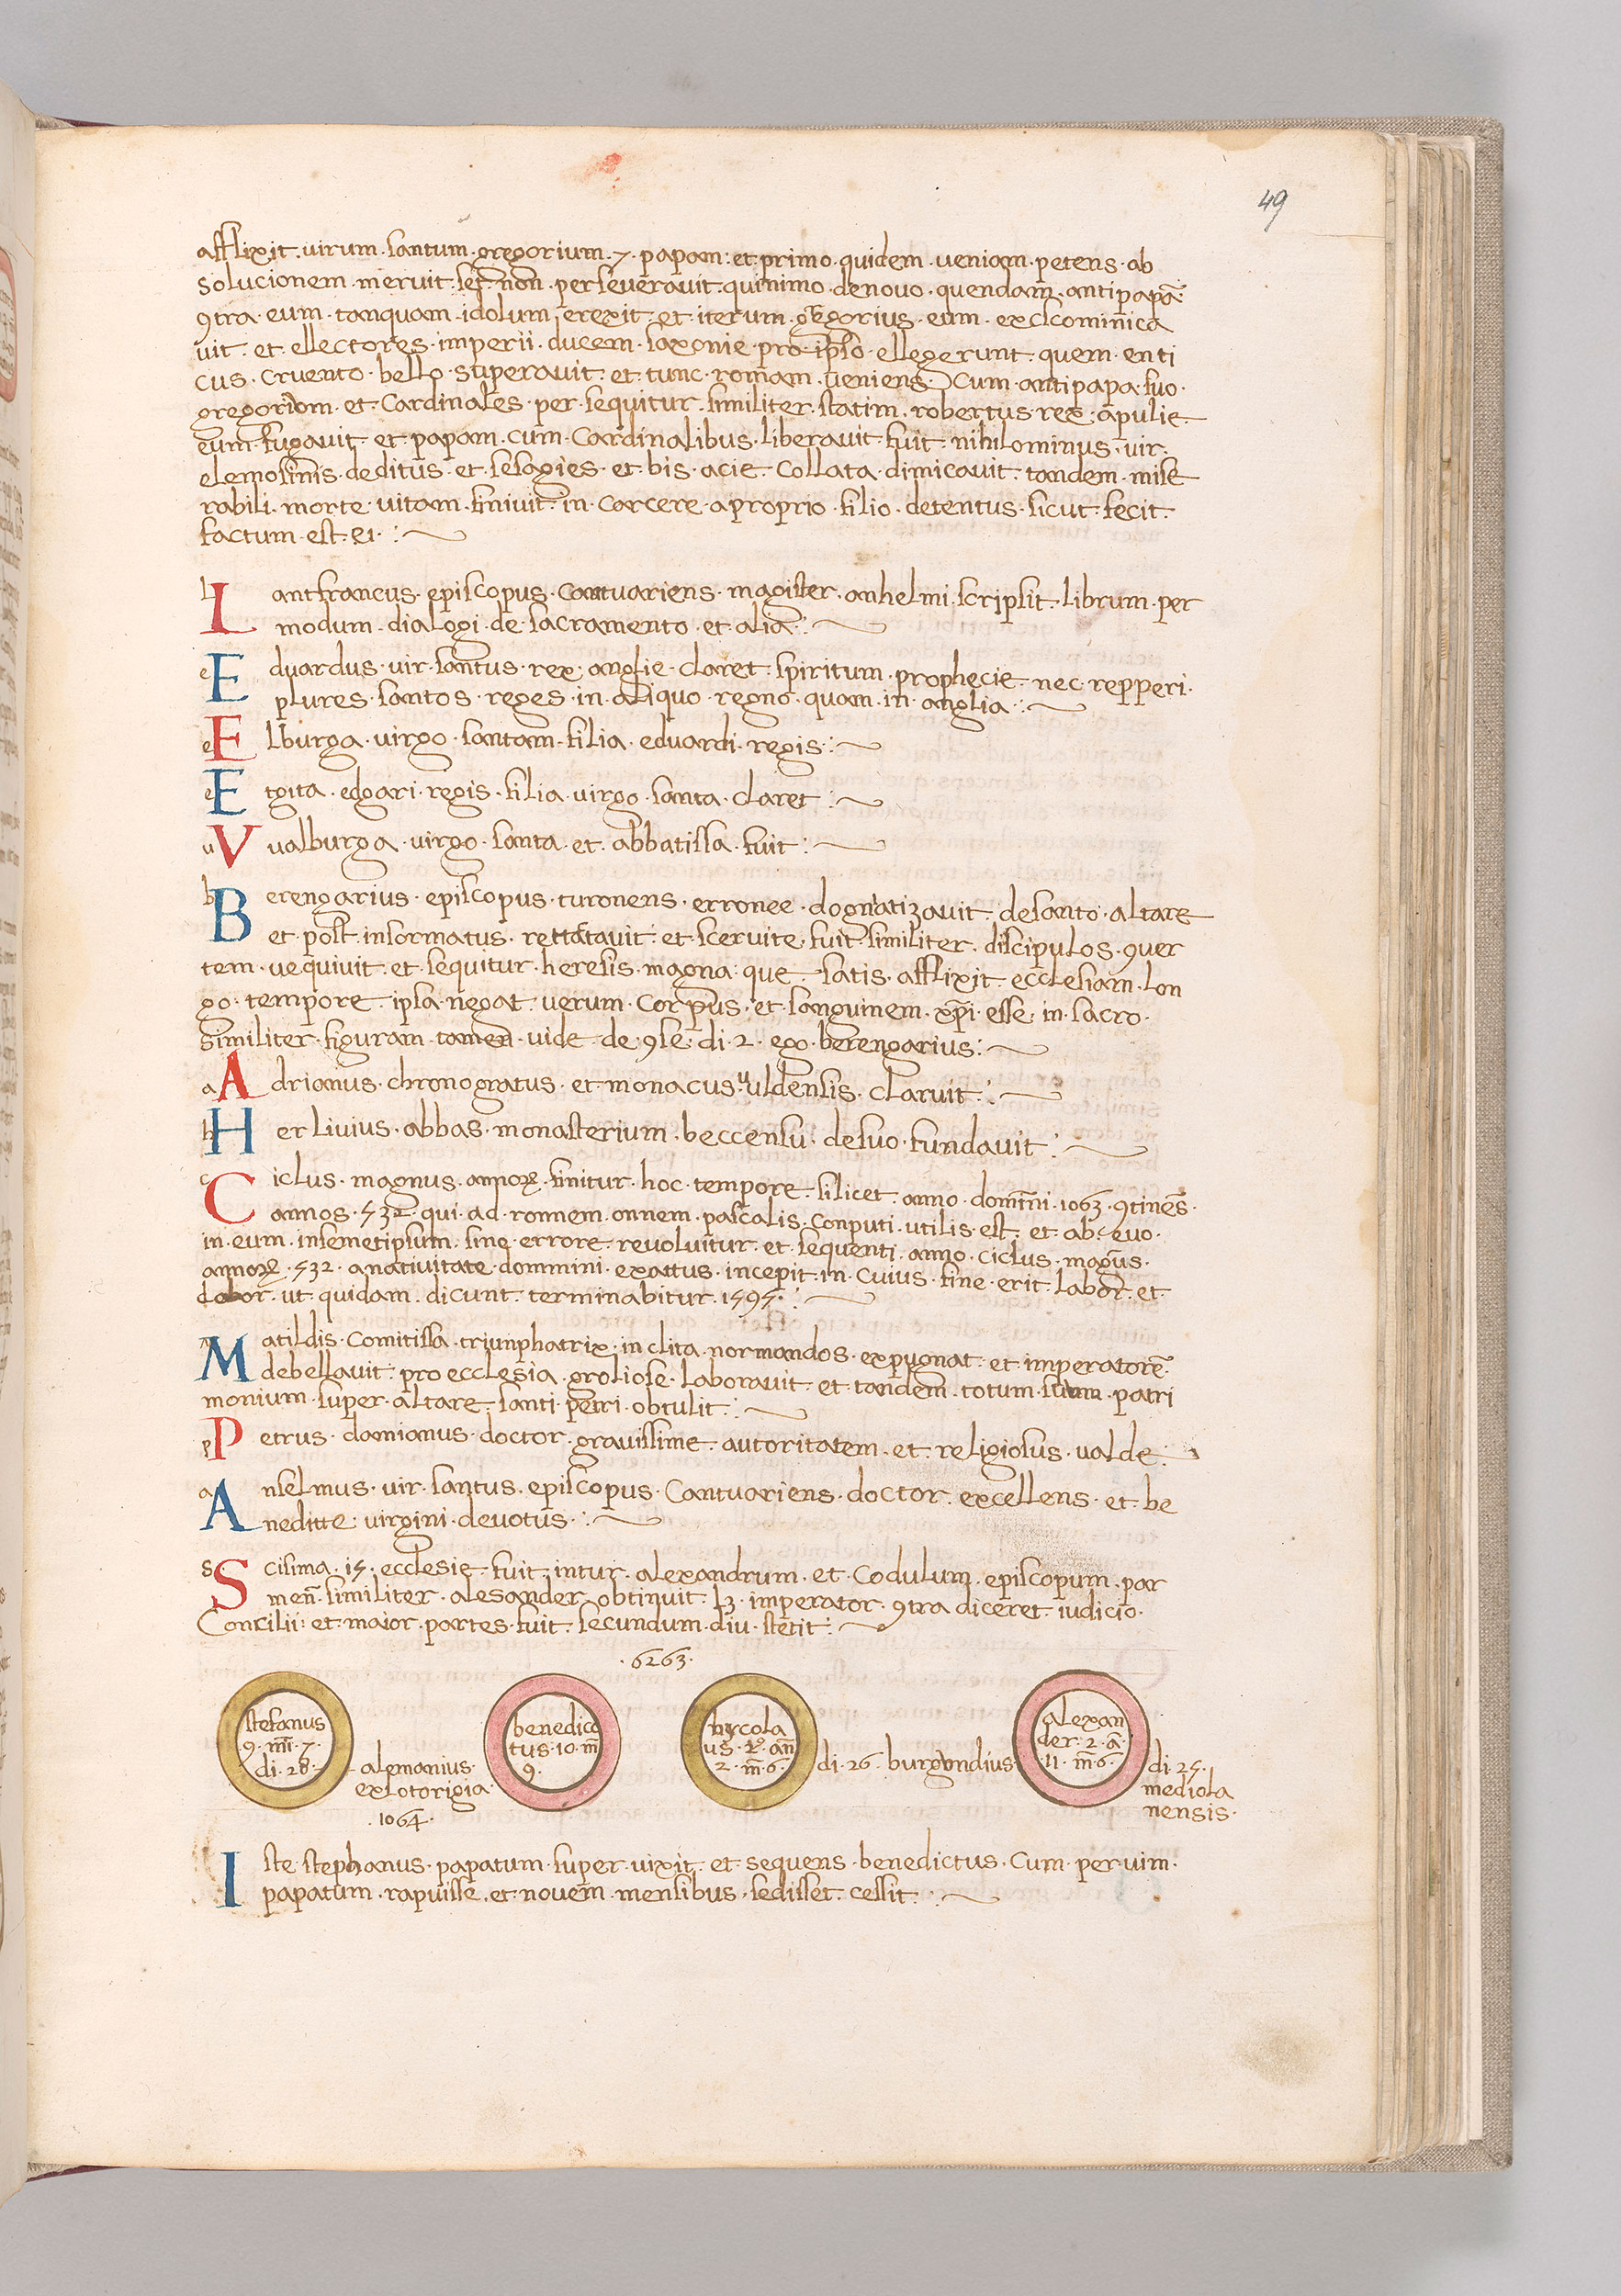 49
afflixit. virum. santum. gregorium. 7. papam: et primo. quidem. veniam. petens. ab
solucionem. meruit. sed. non. perseveravit. quinimo. denovo. quendam. antipapā.
9tra. eum. tanquam. idolum erexit. et. iterum. gregorius. eum. excominica
vit. et. ellectores. imperii. ducem. saxonie. pro. ipso. ellegerunt. quem. enti
cus. cruento. bello. superavit. et. tunc. romam. veniens. Cum. antipapa. suo.
gregorium. et. Cardinales. per. sequitur. similiter. statim. robertus. rex. apulie.
eum. fugavit. et papam. cum. Cardinalibus. liberavit. fuit. nihilominus. vir.
elemosinis. deditus. et. sesagies. et. bis. acie. Collata. dimicavit. tandem. mise
rabili. morte. vitam. finivit. in. Carcere. a proprio. filio. detentus. sicut. fecit.
factum. est. ei. :~
Lantfrancus. episcopus. Cantuariens. magister. anhelmi. scripsit. librum. per
modum. dialogi. de. sacramento. et. alia. :~
Eduardus. vir. santus. rex. anglie. claret. spiritum. prophecie. nec. repperi.
plures. santos. reges. in. aliquo. regno. quam. in. anglia. :~
Elburga. virgo. santam. filia. eduardi. regis. :~
Etgita. edgari. regis. filia. virgo. santa. claret :~
Vualburga. virgo. santa. et. abbatissa. fuit :~
Berengarius. episcopus. turonens. erronee. dogmatizavit. desanto. altare
et. post. informatus. rettatavit. et scervite. fuit. similiter. discipulos. 9ver
tem. vequivit. et. sequitur. heresis. magna. que. satis. afflixit. ecclesiam. lon
go. tempore. ipsa. negat. verum. Corpus. et. sanguinem. xp̄i. esse. in. sacro.
similiter. figuram. tamen. vide. de. 9se. di. 2. ego. berengarius :~
Adrianus. chronogratus. et monacus. vuldensis. claruit. :~
Herlivius. abbas. monasterium. beccensu. desuo. fundavit :~
Ciclus. magnus. annoꝝ. finitur. hoc. tempore. silicet. anno. dommini. 1063. 9tinēs.
annos. 532. qui. ad. ronnem. onnem. pascalis. Conputi. utilis. est. et. ab. evo.
in. eum. insemetipsum. sine. errore. revoluitur. et sequenti. anno. ciclus. magnus.
annoꝝ. 532. a nativitate. dommini. exattus. incepit. in. Cuius. fine. erit. labor. et
dolor. ut. quidam. dicunt. terminabitur. 1595. :~
Matildis. Comitissa. triunphatrix. in clita. normandos. expugnat. et imperatorē.
debellavit. pro ecclesia. groliose. laboravit. et. tandem. totum. suum. patri
monium. super. altare. santi. petri. obtulit. :~
Petrus. damianus. doctor. gravissime. autoritatem. et religiosus. valde. :~
Anselmus. vir. santus. episcopus. Cantuariens. doctor. excellens. et. be
neditte. virgini. devotus. :~
Scisima. 15. ecclesie. fuit. intur. alexandrum. et. Codulum. episcopum. par
men̄. similiter. alesander. obtinuit. lꝫ. imperator. 9tra diceret. iudicio.
Concilii: et. maior. partes. fuit. secundum. diu. stetit :~
. 6263.
stefanus
9. m̄. 7.
di. 28.
alemanius.
exlotorigia.
. 1064.
benedic
tus. 10. m̄
9.
nycola
us. 2. an̄
2. m̄. 6.
di. 26. burgundius
alexan
der. 2. ā
11. m̄. 6.
di. 25.
mediola
nensis.
Iste. stephanus. papatum. super. vixit. et. sequens. benedictus. Cum. per vim.
papatum. rapuisse. et. novem. mensibus. sedisset. cessit. :~